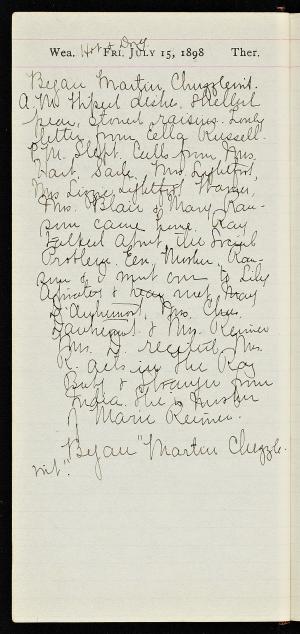 Wea. Hot & Dry Fri. July 15, 1898 Ther.
Began Martin Chuzzlewit.
A.M. Wiped dishes. Shelled
peas, stoned raisins. Long
letter from Ella Russell.
P.M. Slept. Calls from Mrs.
Hart, Mrs. Lightfoot,
Mrs. Lightfoot Warner,
Mrs. Blair & Mary Ran-
som came here. Ray
talked about the Social
Problem. Eve, Mother, Ran-
som & I went over to Lily
& May met May
Mrs. Chas.
& Mrs. Reimer
Mrs. received. Mrs.
R. gets in the Ray
from
India. She is mother
of Marie Reimer.
Began "Martin Chuzzle-
wit".